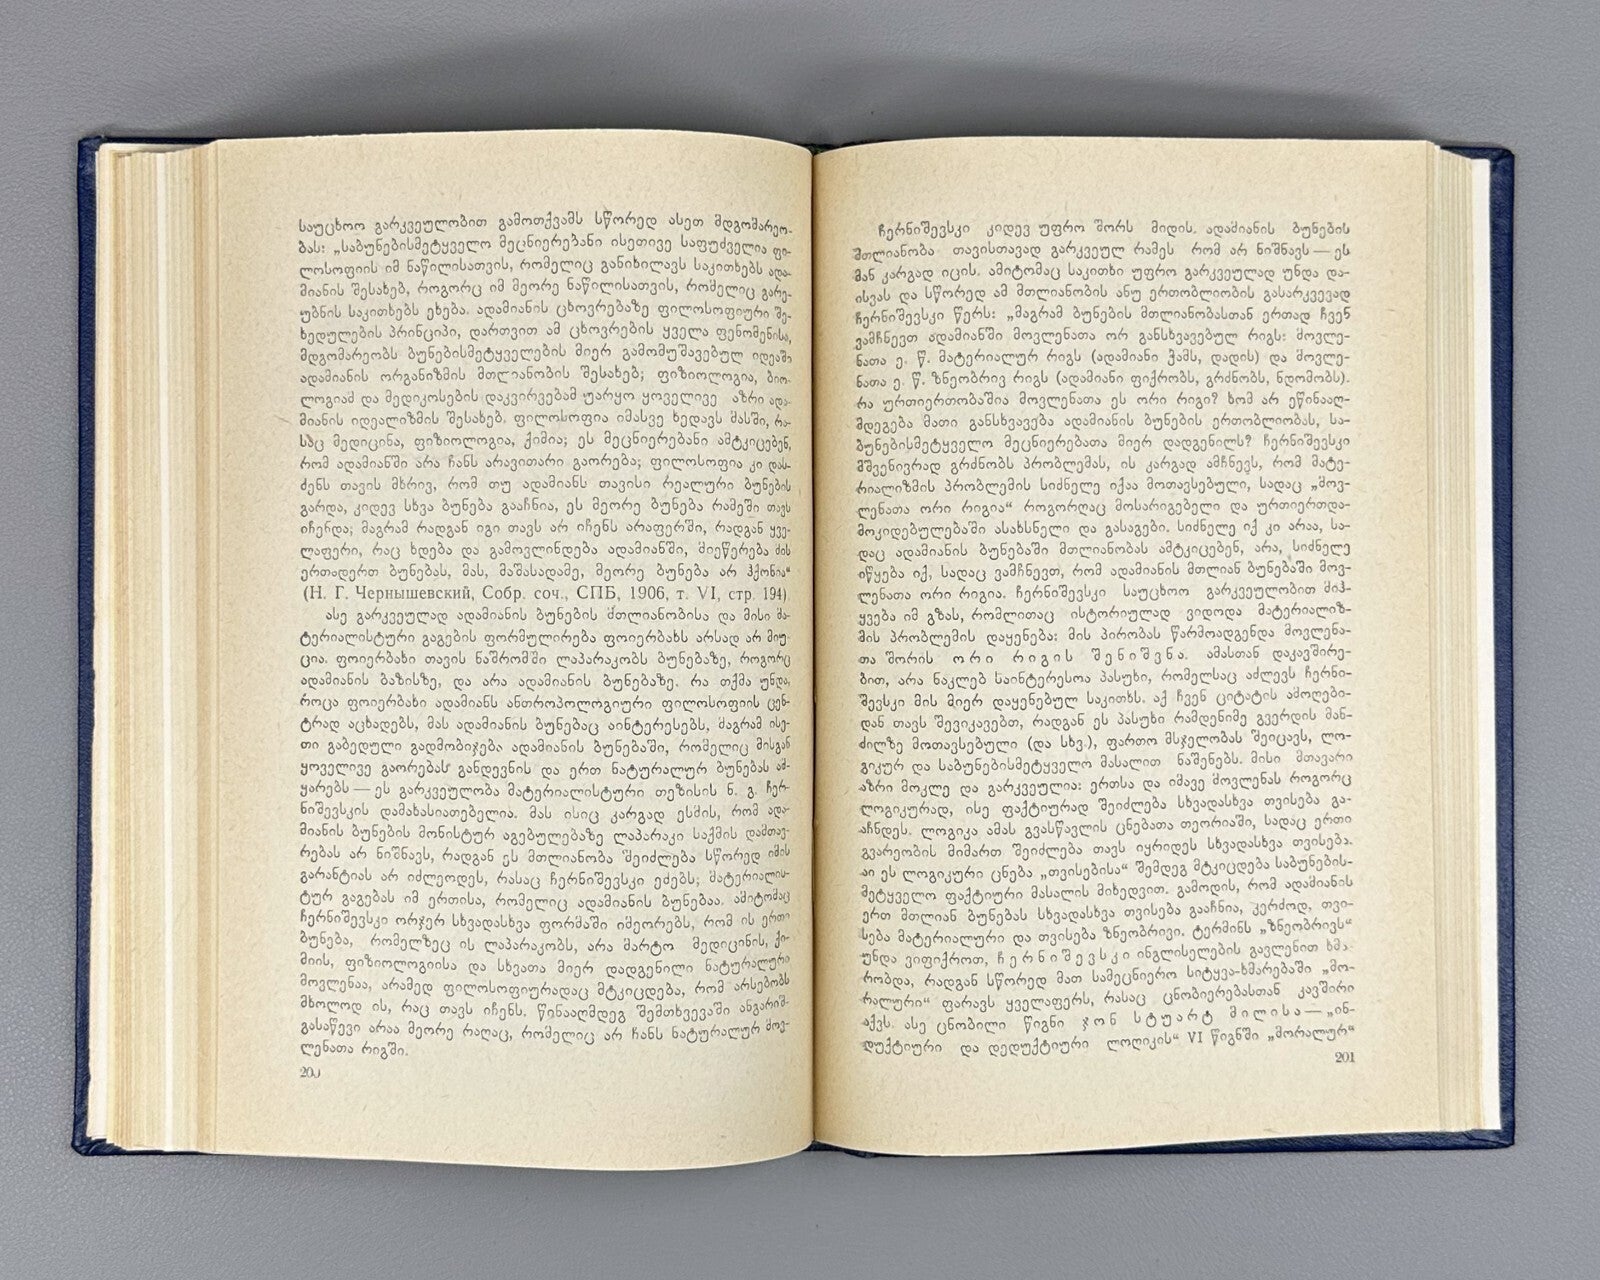 საუცხოო გარკვეულობით გამოთქვამს სწორედ ასეთ მდგომარეო-
ბას: „საბუნებისმეტყველო მეცნიერებანი ისეთივე საფუძველია ფი-
ლოსოფიის იმ ნაწილისათვის, რომელიც განიხილავს საკითხებს ადა-
მიანის შესახებ, როგორც იმ მეორე ნაწილისათვის, რომელიც გარე-
უბნის საკითხებს ეხება. ადამიანის ცხოვრებაზე ფილოსოფიური შე-
ხედულების პრინციპი, დართვით ამ ცხოვრების ყველა ფენომენისა,
მდგომარეობს ბუნებისმეტყველების მიერ გამომუშავებულ იდეაში
ადამიანის ორგანიზმის მთლიანობის შესახებ; ფიზიოლოგია, ბიო-
ლოგიამ და მედიკოსების დაკვირვებამ უარყო ყოველივე აზრი ადა-
მიანის იდეალიზმის შესახებ. ფილოსოფია იმასვე ხედავს მასში, რა-
საც მედიცინა, ფიზიოლოგია, ქიმია; ეს მეცნიერებანი ამტკიცებენ,
რომ ადამიანში არა ჩანს არავითარი გაორება; ფილოსოფია კი დას-
ძენს თავის მხრივ, რომ თუ ადამიანს თავისი რეალური ბუნების
გარდა, კიდევ სხვა ბუნება გააჩნია, ეს მეორე ბუნება რამეში თავს
იჩენდა; მაგრამ რადგან იგი თავს არ იჩენს არაფერში, რადგან ყვე-
ლაფერი, რაც ხდება და გამოვლინდება ადამიანში, მიეწერება მის
ერთადერთ ბუნებას, მას, მაშასადამე, მეორე ბუნება არ ჰქონია“
(Н. Г. Чернышевский, Собр. соч., СПБ, 1906, т. VI, стр. 194)
ასე გარკვეულად ადამიანის ბუნების მთლიანობისა და მისი მა-
ტერიალისტური გაგების ფორმულირება ფოიერბახს არსად არ მიუ-
ცია. ფოიერბახი თავის ნაშრომში ლაპარაკობს ბუნებაზე, როგორც
ადამიანის ბაზისზე, და არა ადამიანის ბუნებაზე. რა თქმა უნდა,
როცა ფოიერბახი ადამიანს ანთროპოლოგიური ფილოსოფიის ცენ-
ტრად აცხადებს, მას ადამიანის ბუნებაც აინტერესებს, მაგრამ ისე-
თი გაბედული გადმობიჯება ადამიანის ბუნებაში, რომელიც მისგან
ყოველივე გაორებას განდევნის და ერთ ნატურალურ ბუნებას ამ-
ყარებს — ეს გარკვეულობა მატერიალისტური თეზისის ნ. გ. ჩერ-
ნიშევსკის დამახასიათებელია. მას ისიც კარგად ესმის, რომ ადა-
მიანის ბუნების მონისტურ აგებულებაზე ლაპარაკი საქმის დამთავ-
რებას არ ნიშნავს, რადგან ეს მთლიანობა შეიძლება სწორედ იმის
გარანტიას არ იძლეოდეს, რასაც ჩერნიშევსკი ეძებს; მატერიალის-
ტურ გაგებას იმ ერთისა, რომელიც ადამიანის ბუნებაა. ამიტომაც
ჩერნიშევსკი ორჯერ სხვადასხვა ფორმაში იმეორებს, რომ ის ერთი
ბუნება, რომელზეც ის ლაპარაკობს, არა მარტო მედიცინის, ქი-
მიის, ფიზიოლოგიისა და სხვათა მიერ დადგენილი ნატურალური
მოვლენაა, არამედ ფილოსოფიურადაც მტკიცდება, რომ არსებობს
მხოლოდ ის, რაც თავს იჩენს. წინააღმდეგ შემთხვევაში ანგარიშ-
გასაწევი არაა მეორე რაღაც, რომელიც არ ჩანს ნატურალურ მოვ-
ლენათა რიგში.
200
ჩერნიშევსკი კიდევ უფრო შორს მიდის. ადამიანის ბუნების
მთლიანობა თავისთავად გარკვეულ რამეს რომ არ ნიშნავს — ეს
მან კარგად იცის. ამიტომაც საკითხი უფრო გარკვეულად უნდა და-
ისვას და სწორედ ამ მთლიანობის ანუ ერთობლიობის გასარკვევად
ჩერნიშევსკი წერს: „მაგრამ ბუნების მთლიანობასთან ერთად ჩვენ
ვამჩნევთ ადამიანში მოვლენათა ორ განსხვავებულ რიგს: მოვლე-
ნათა ე. წ. მატერიალურ რიგს (ადამიანი ჭამს, დადის) და მოვლე-
ნათა ე. წ. ზნეობრივ რიგს (ადამიანი ფიქრობს, გრძნობს, ნდომობს).
რა ურთიერთობაშია მოვლენათა ეს ორი რიგი? ხომ არ ეწინააღ-
მდეგება მათი განსხვავება ადამიანის ბუნების ერთობლიობას, სა-
ბუნებისმეტყველო მეცნიერებათა მიერ დადგენილს? ჩერნიშევსკი
მშვენივრად გრძნობს პრობლემას, ის კარგად ამჩნევს, რომ მატე-
რიალიზმის პრობლემის სიძნელე იქაა მოთავსებული, სადაც „მოვ-
ლენათა ორი რიგია“ როგორღაც მოსარიგებელი და ურთიერთდა-
მოკიდებულებაში ასახსნელი და გასაგები. სიძნელე იქ კი არაა, სა-
დაც ადამიანის ბუნებაში მთლიანობას ამტკიცებენ, არა, სიძნელე
იწყება იქ, სადაც ვამჩნევთ, რომ ადამიანის მთლიან ბუნებაში მოვ-
ლენათა ორი რიგია. ჩერნიშევსკი საუცხოო გარკვეულობით მიჰ-
ყვება იმ გზას, რომლითაც ისტორიულად ვიდოდა მატერიალიზ-
მის პრობლემის დაყენება: მის პირობას წარმოადგენდა მოვლენა-
თა შორის ორი რიგის შენიშვნა. ამასთან დაკავშირე-
ბით, არა ნაკლებ საინტერესოა პასუხი, რომელსაც აძლევს ჩერნი-
შევსკი მის მიერ დაყენებულ საკითხს. აქ ჩვენ ციტატის ამოღები-
დან თავს შევიკავებთ, რადგან ეს პასუხი რამდენიმე გვერდის მან-
ძილზე მოთავსებული (და სხვ.), ფართო მსჯელობას შეიცავს, ლო-
გიკურ და საბუნებისმეტყველო მასალით ნაშენებს. მისი მთავარი
აზრი მოკლე და გარკვეულია: ერთსა და იმავე მოვლენას როგორც
ლოგიკურად, ისე ფაქტიურად შეიძლება სხვადასხვა თვისება გა-
აჩნდეს. ლოგიკა ამას გვასწავლის ცნებათა თეორიაში, სადაც ერთი
გვარეობის მიმართ შეიძლება თავს იყრიდეს სხვადასხვა თვისება.
აი ეს ლოგიკური ცნება „თვისებისა“ შემდეგ მტკიცდება საბუნების-
მეტყველო ფაქტიური მასალის მიხედვით. გამოდის, რომ ადამიანის
ერთ მთლიან ბუნებას სხვადასხვა თვისება გააჩნია, კერძოდ, თვი-
სება მატერიალური და თვისება ზნეობრივი. ტერმინს „ზნეობრივს“
უნდა ვიფიქროთ, ჩერნიშევსკი ინგლისელების გავლენით ხმა-
რობდა, რადგან სწორედ მათ სამეცნიერო სიტყვა-ხმარებაში „მო-
რალური“ ფარავს ყველაფერს, რასაც ცნობიერებასთან კავშირი
აქვს. ასე ცნობილი წიგნი ჯონ სტუარტ მილისა — „ინ-
დუქტიური და დედუქტიური ლოღიკის“ VI წიგნში „მორალურ“
201